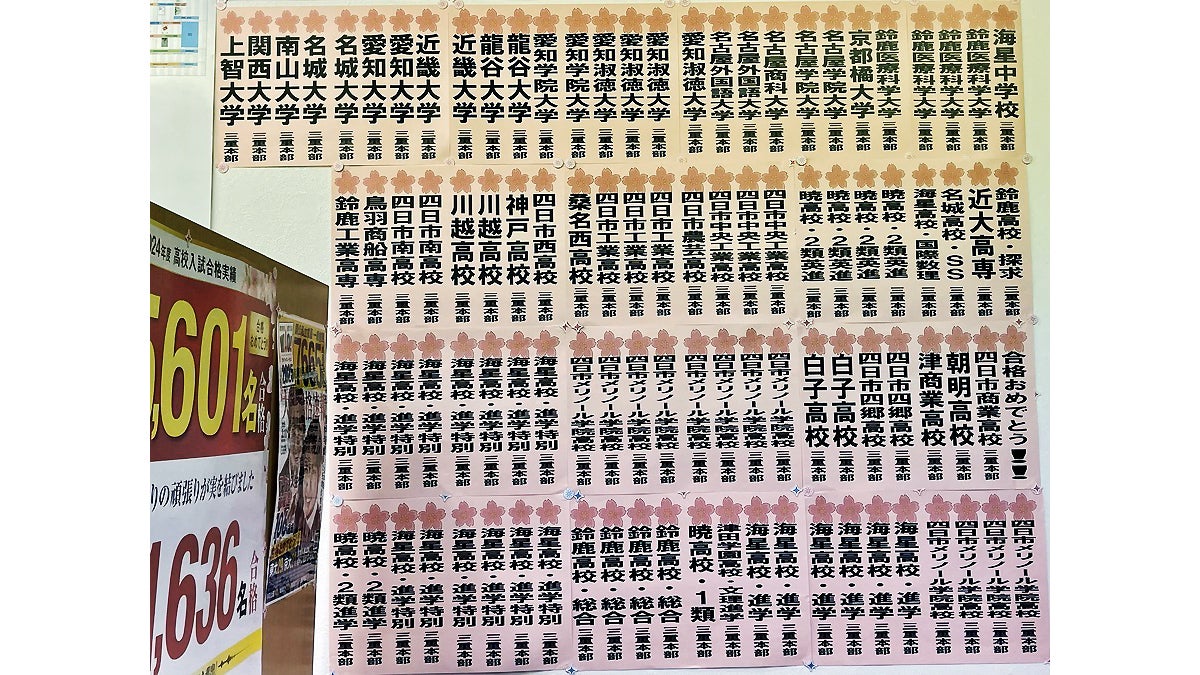 海星中学校 三重本部
鈴鹿医療科学大学 三重本部
鈴鹿医療科学大学 三重本部
鈴鹿医療科学大学 三重本部
鈴鹿医療科学大学 三重本部
京都橘大学 三重本部
名古屋学院大学 三重本部
名古屋学院大学 三重本部
名古屋商科大学 三重本部
名古屋外国語大学 三重本部
名古屋外国語大学 三重本部
愛知淑徳大学 三重本部
愛知淑徳大学 三重本部
愛知淑徳大学 三重本部
愛知淑徳大学 三重本部
愛知学院大学 三重本部
愛知学院大学 三重本部
龍谷大学 三重本部
龍谷大学 三重本部
近畿大学 三重本部
近畿大学 三重本部
愛知大学 三重本部
愛知大学 三重本部
名城大学 三重本部
名城大学 三重本部
南山大学 三重本部
関西大学 三重本部
上智大学 三重本部
鈴鹿高校・探求 三重本部
近大高専 三重本部
名城高校・SS 三重本部
海星高校・国際数理 三重本部
暁高校・2類英進 三重本部
暁高校・2類英進 三重本部
暁高校・2類英進 三重本部
暁高校・2類英進 三重本部
四日市中央工業高校 三重本部
四日市中央工業高校 三重本部
四日市中央工業高校 三重本部
四日市農芸高校 三重本部
四日市工業高校 三重本部
四日市工業高校 三重本部
四日市工業高校 三重本部
桑名西高校 三重本部
四日市西高校 三重本部
神戸高校 三重本部
川越高校 三重本部
川越高校 三重本部
四日市南高校 三重本部
四日市南高校 三重本部
鳥羽商船高専 三重本部
鈴鹿工業高専 三重本部
合格おめでとう!!
四日市商業高校 三重本部
朝明高校 三重本部
津商業高校 三重本部
四日市四郷高校 三重本部
四日市四郷高校 三重本部
白子高校 三重本部
白子高校 三重本部
四日市メリノール学院高校 三重本部
四日市メリノール学院高校 三重本部
四日市メリノール学院高校 三重本部
四日市メリノール学院高校 三重本部
四日市メリノール学院高校 三重本部
四日市メリノール学院高校 三重本部
四日市メリノール学院高校 三重本部
四日市メリノール学院高校 三重本部
海星高校・進学特別 三重本部
海星高校・進学特別 三重本部
海星高校・進学特別 三重本部
海星高校・進学特別 三重本部
海星高校・進学特別 三重本部
海星高校・進学特別 三重本部
海星高校・進学特別 三重本部
海星高校・進学特別 三重本部
四日市メリノール学院高校 三重本部
四日市メリノール学院高校 三重本部
四日市メリノール学院高校 三重本部
四日市メリノール学院高校 三重本部
海星高校・進学 三重本部
海星高校・進学 三重本部
海星高校・進学 三重本部
海星高校・進学 三重本部
海星高校・進学 三重本部
海星高校・進学 三重本部
津田学園高校・文理進学 三重本部
暁高校・1類 三重本部
鈴鹿高校・総合 三重本部
鈴鹿高校・総合 三重本部
鈴鹿高校・総合 三重本部
鈴鹿高校・総合 三重本部
海星高校・進学特別 三重本部
海星高校・進学特別 三重本部
海星高校・進学特別 三重本部
海星高校・進学特別 三重本部
海星高校・進学特別 三重本部
海星高校・進学特別 三重本部
暁高校・2類進学 三重本部
暁高校・2類進学 三重本部
024年度 高校入試合格実績
,601名合格
合格おめでとう
りの頑張りが実を結びました
,636名合格